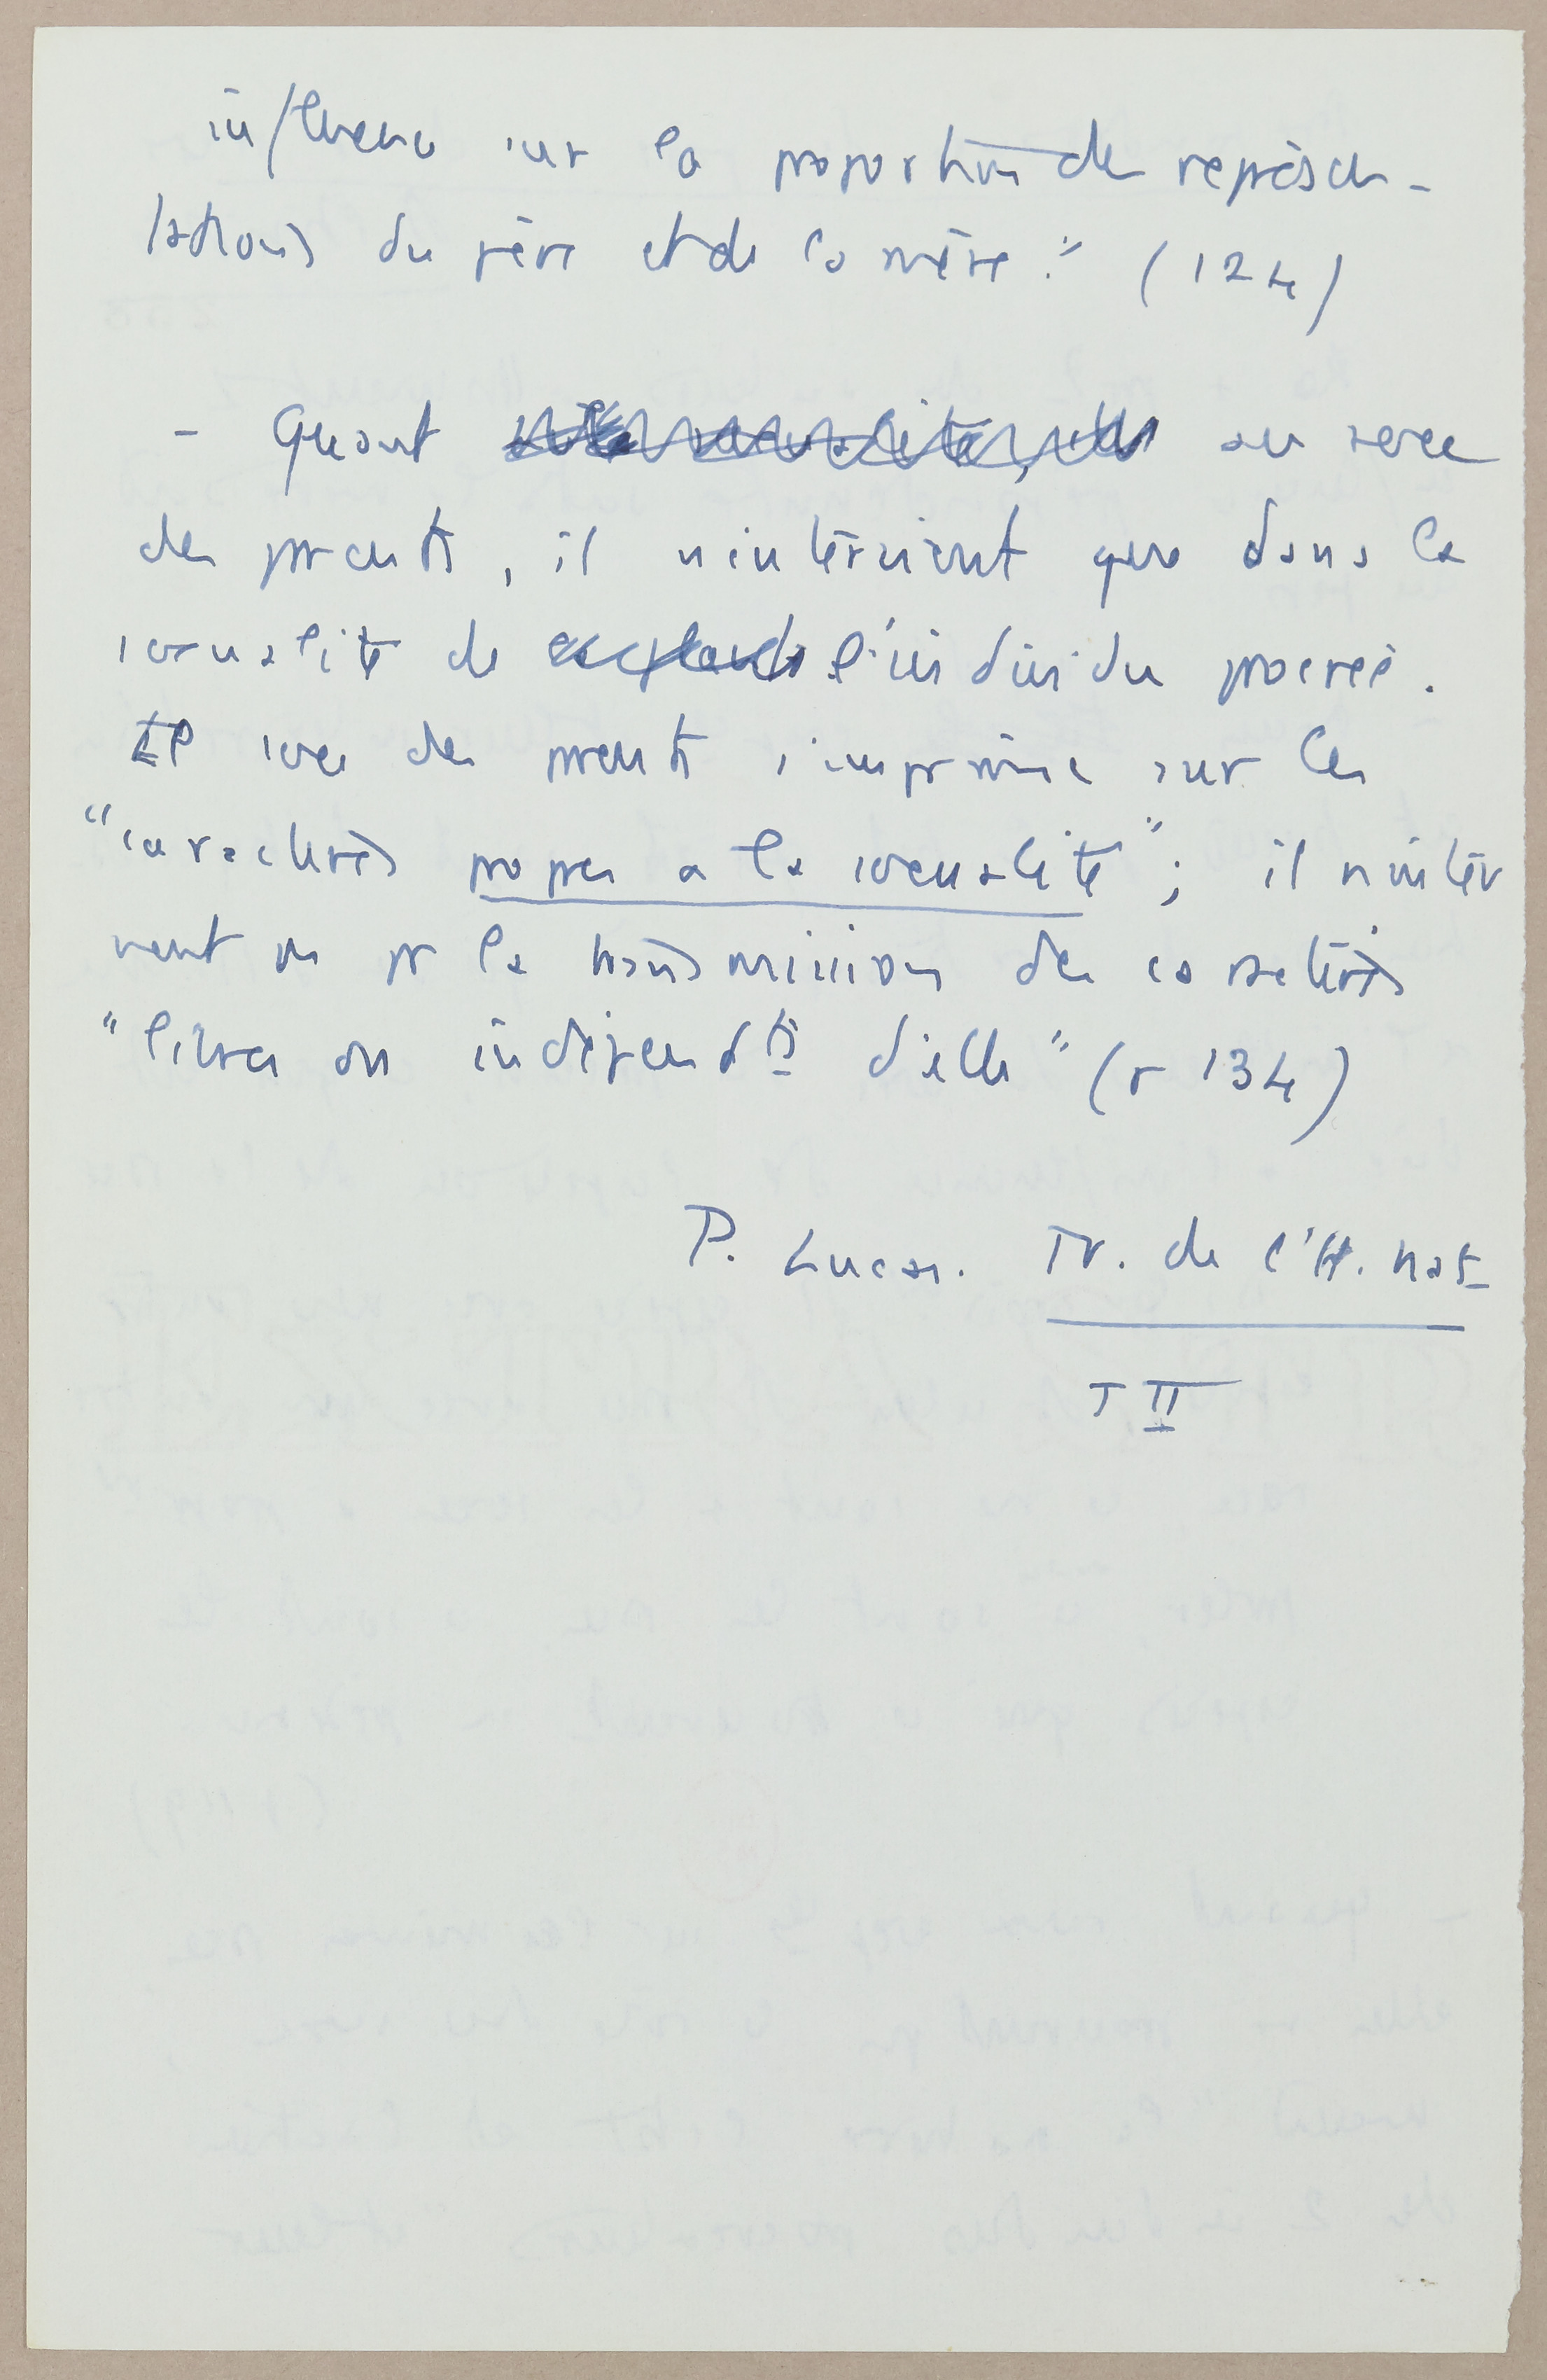 influence sur la proportion des représen-
tations du père et de la mère." (124)
- Quant au sexe
des parents, il n'intervient que dans la
sexualité de l'individu procréé.
Le sexe des parents s'imprime sur les
"caractères propres a la sexualité"; il n'inter
vient pas pr la transmission des caractères
"libres ou indépendts d'elle" (p 134)
P. Lucas. Tr. de l'H. nat
T II